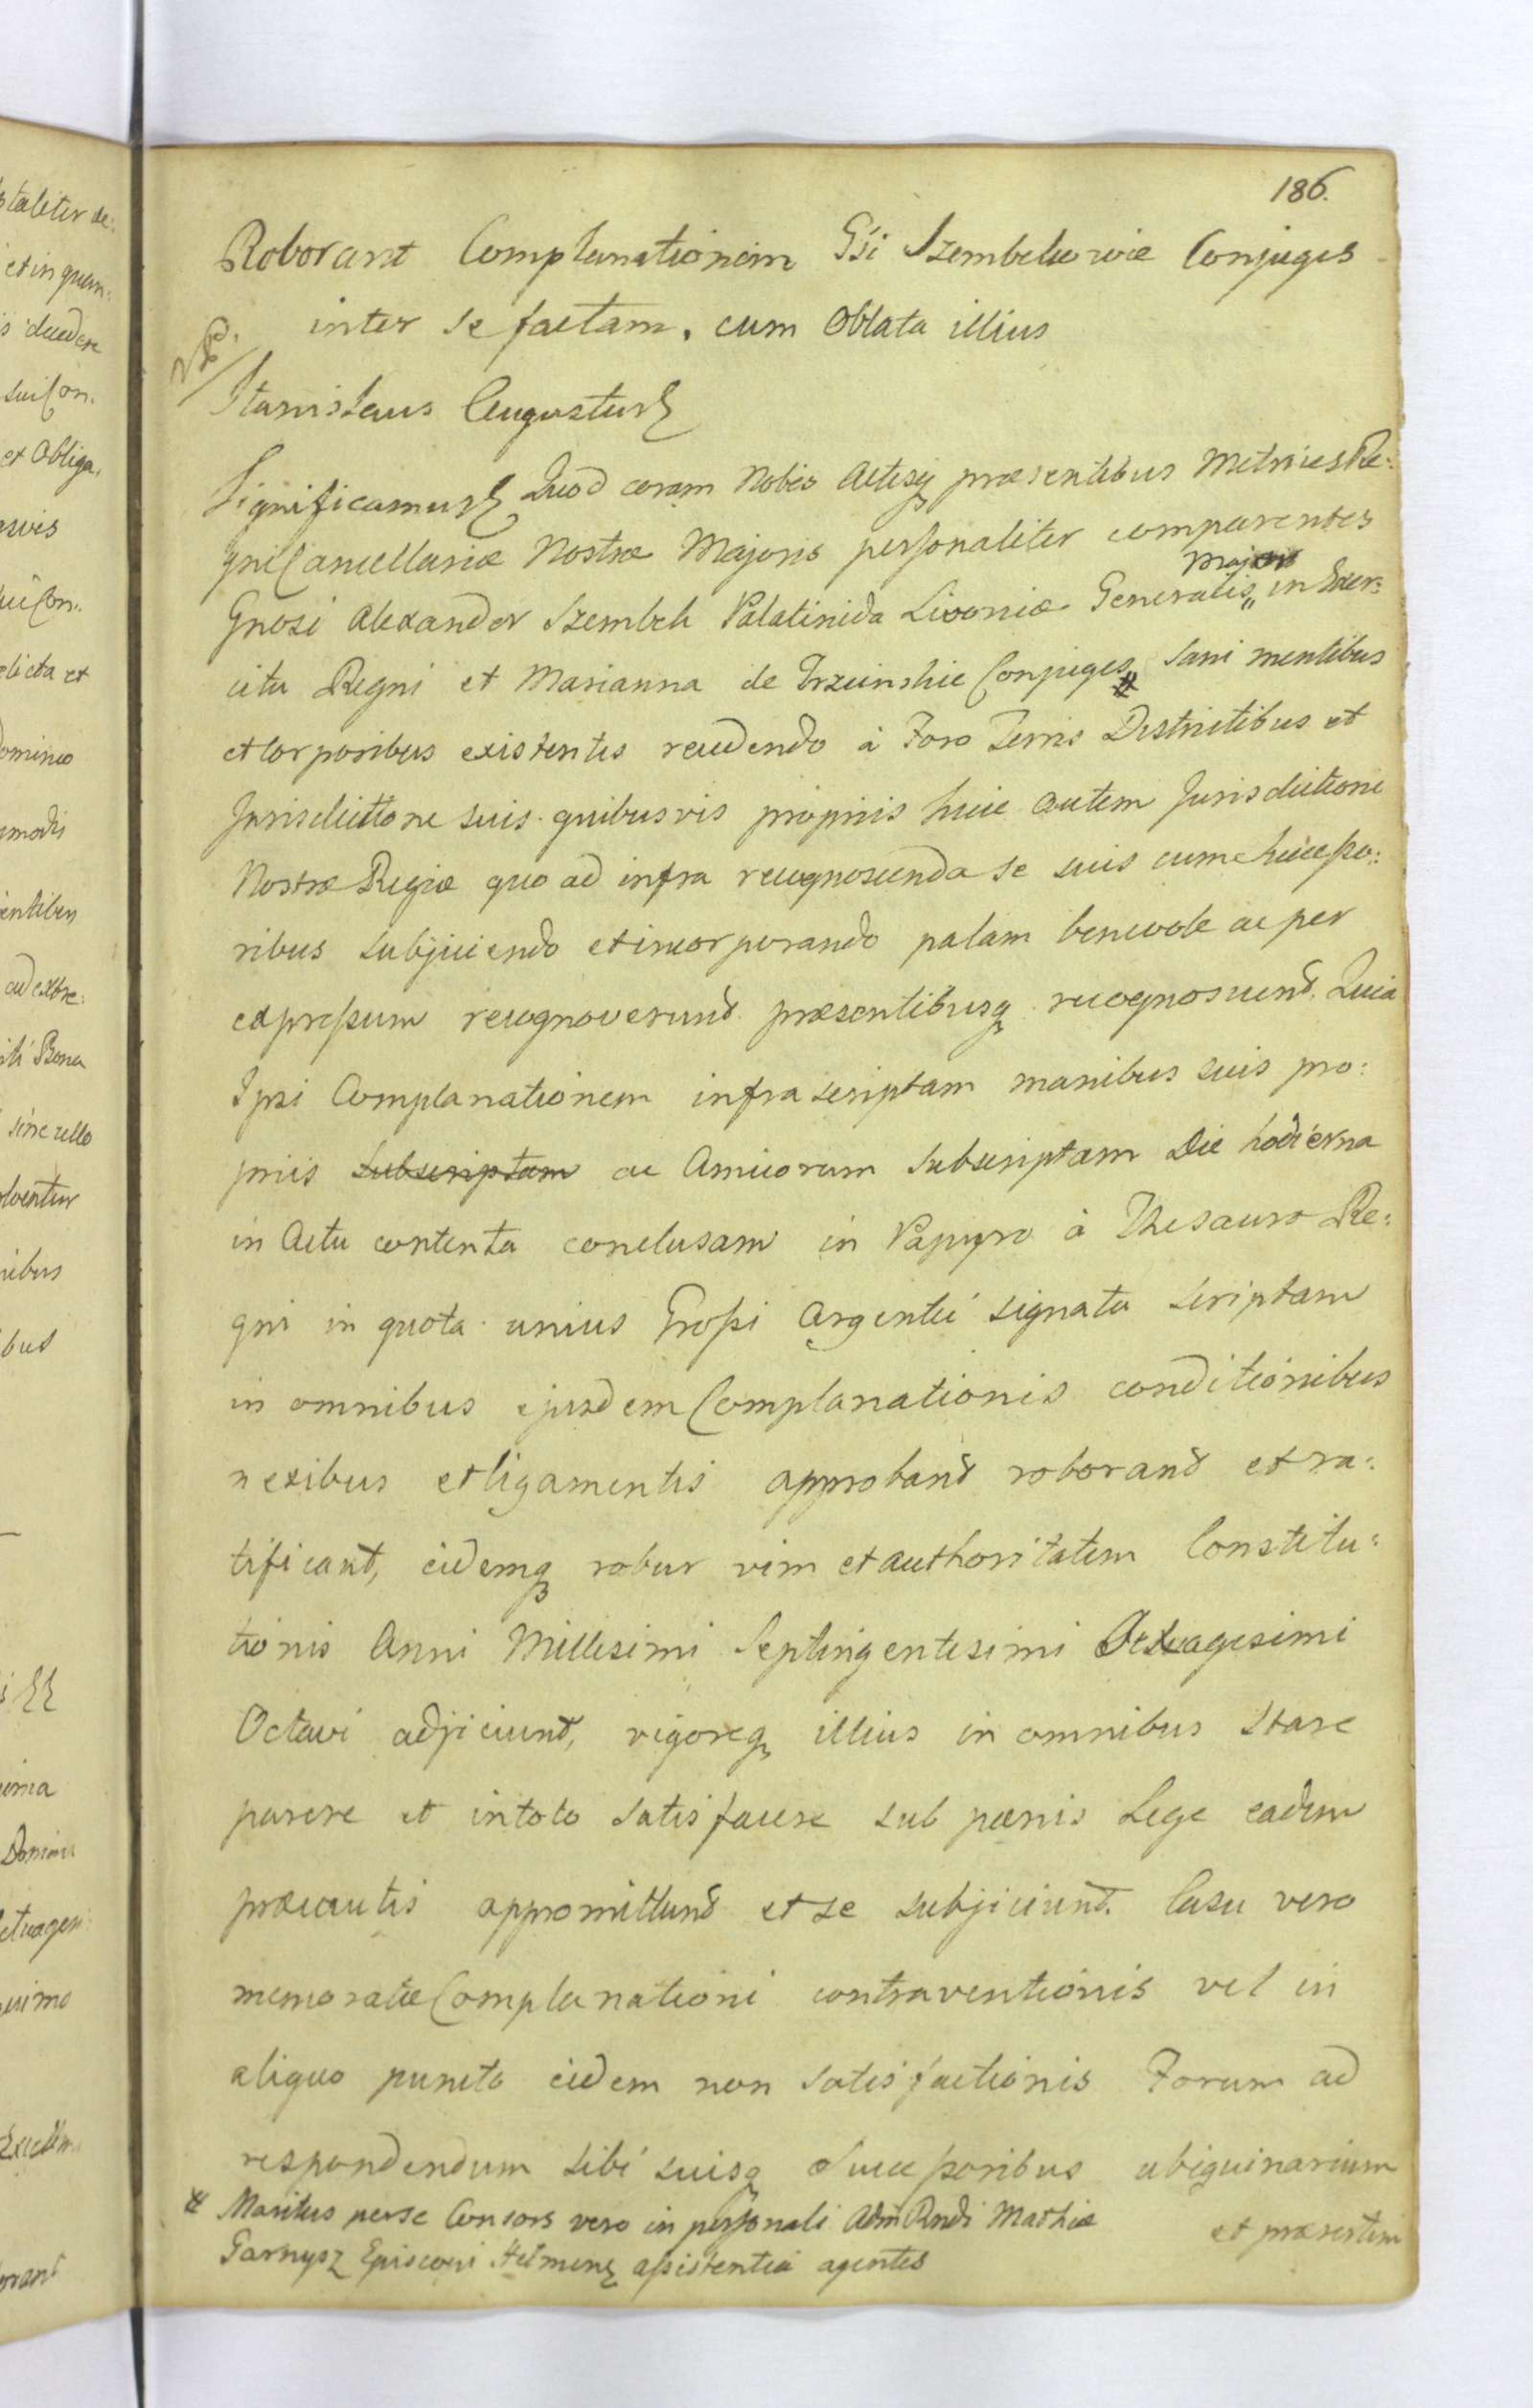 186.
Roborant Complanationem Gsi Szembekowie Conjuges
inter se factam, cum Oblata illius
Stanislaus Augustus
Significamus Quod coram Nobis Actisq præsentibus Metrices Re:
gni Cancellariæ Nostræ Majoris personaliter comparentes
Major
Gnosi Alexander Szembek Palatinida Livoniæ Generalis „ in Exer:
citu Regni et Marianna de Trzcinskie Conjuges # Sani mentibus
et corporibus existentes recedendo à Foro Terris Districtibus et
Jurisdictione suis quibusvis propriis huic autem Jurisdictioni
Nostræ Regiæ quo ad infra recognoscenda se suis cum succeßo:
ribus subjiciendo et incorporando palam benevole ac per
expreßum recognoverunt præsentibusq recognoscunt. Quia
Ipsi Complanationem infrascriptam manibus suis pro:
priis subscriptam ac Amicorum subscriptam Die hodierna
in Actu contenta conclusam in Papyro à Thesauro Re:
gni in quota unius Großi Argentei signata scriptam
in omnibus ejusdem Complanationis conditionibus
nexibus et ligamentis approbant roborant et ra:
tificant, eidemq robur vim et authoritatem Constitu:
tionis Anni Millesimi Septingentesimi Sexagesimi
Octavi adjiciunt, vigoreq illius in omnibus stare
parere et in toto satisfacere sub pœnis Lege eadem
præcautis appromittunt et se subjiciunt. Casu vero
memoratæ Complanationi contraventionis vel in
aliquo puncto eidem non satisfactionis Forum ad
respondendum sibi suisq Succeßoribus ubiquinarium
# Maritus per se Consors vero in personali Adm Rndi Mathiæ
Garnysz Episcopi Helmens aßistentia agentes
et præsertim